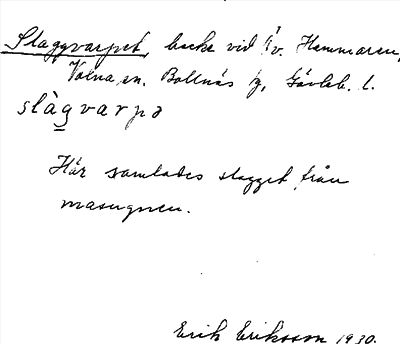 Slaggvarpet, backe vid v. Hammaren,
Volna, en. Bollnäs sn, Gävleb. l.
slàgvarpə
Här samlades slagget från
masugnen.
Erik Eriksson 1930.